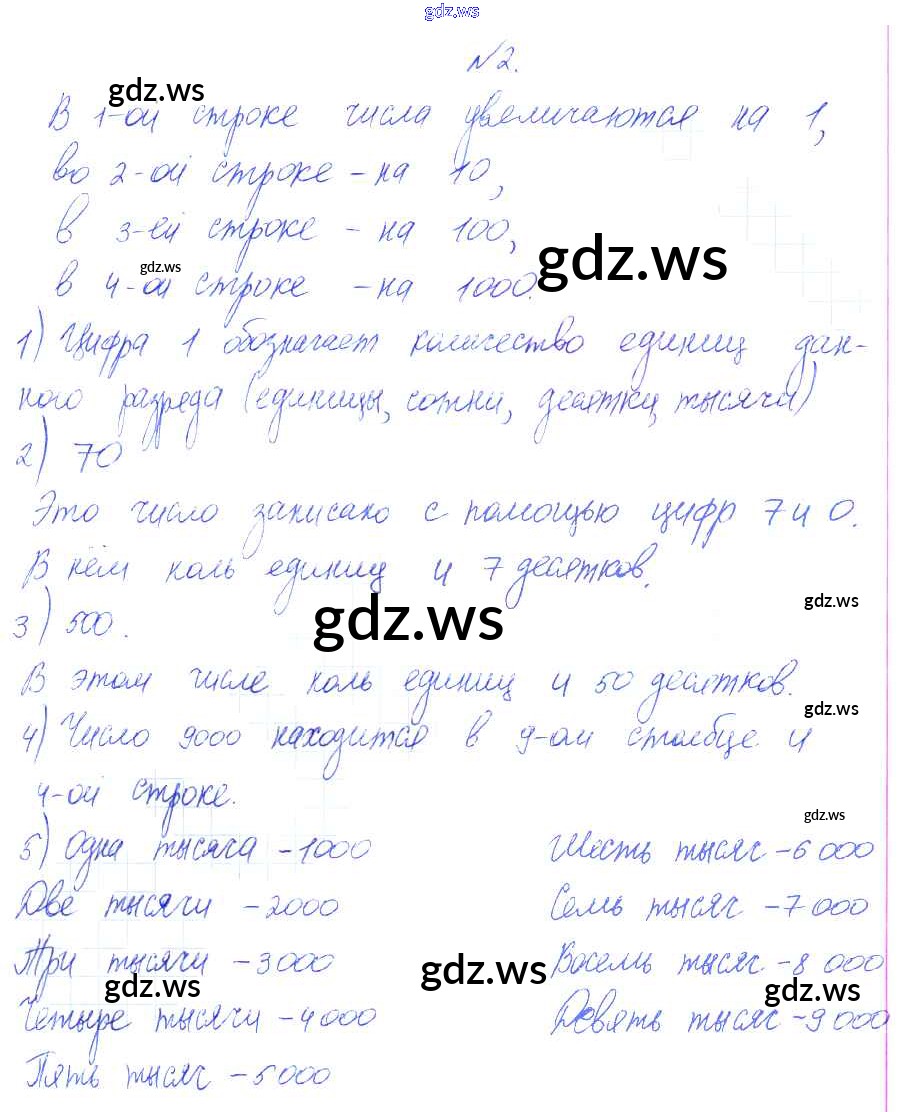 gdz.ws
№2.
gdz.ws
В 1-ой строке числа увеличаются на 1,
во 2-ой строке - на 10,
в 3-ей строке - на 100,
gdz.ws
gdz.ws
в 4-ой строке - на 1000.
1) Цифра 1 обозначает количество единиц дан-
ного разряда (единицы, сотни, десятки, тысячи)
2) 70
Это число записано с помощью цифр 7 и 0.
В нём ноль единиц и 7 десятков.
gdz.ws
gdz.ws
3) 500.
В этом числе ноль единиц и 50 десятков.
gdz.ws
4) Число 9000 находится в 9-ом столбце и
4-ой строке.
gdz.ws
5) Одна тысяча - 1000
Две тысячи - 2000
Три тысячи - 3000
gdz.ws
Четыре тысячи - 4000
Пять тысяч - 5000
Шесть тысяч - 6 000
Семь тысяч - 7 000
gdz.ws
Восемь тысяч - 8 000
gdz.ws
Девять тысяч - 9 000